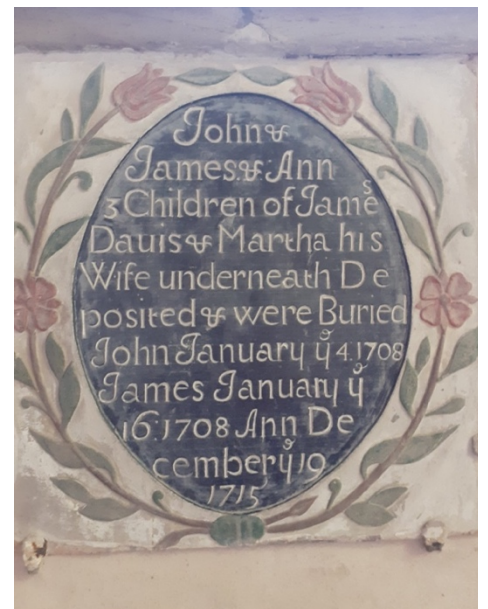 John &
James & Ann
3 Children of James
Dauis & Martha his
Wife underneath De
posited & were Buried
John January yͤ 4.1708
James January yͤ
16.1708 Ann De
cember yͤ 19
1715